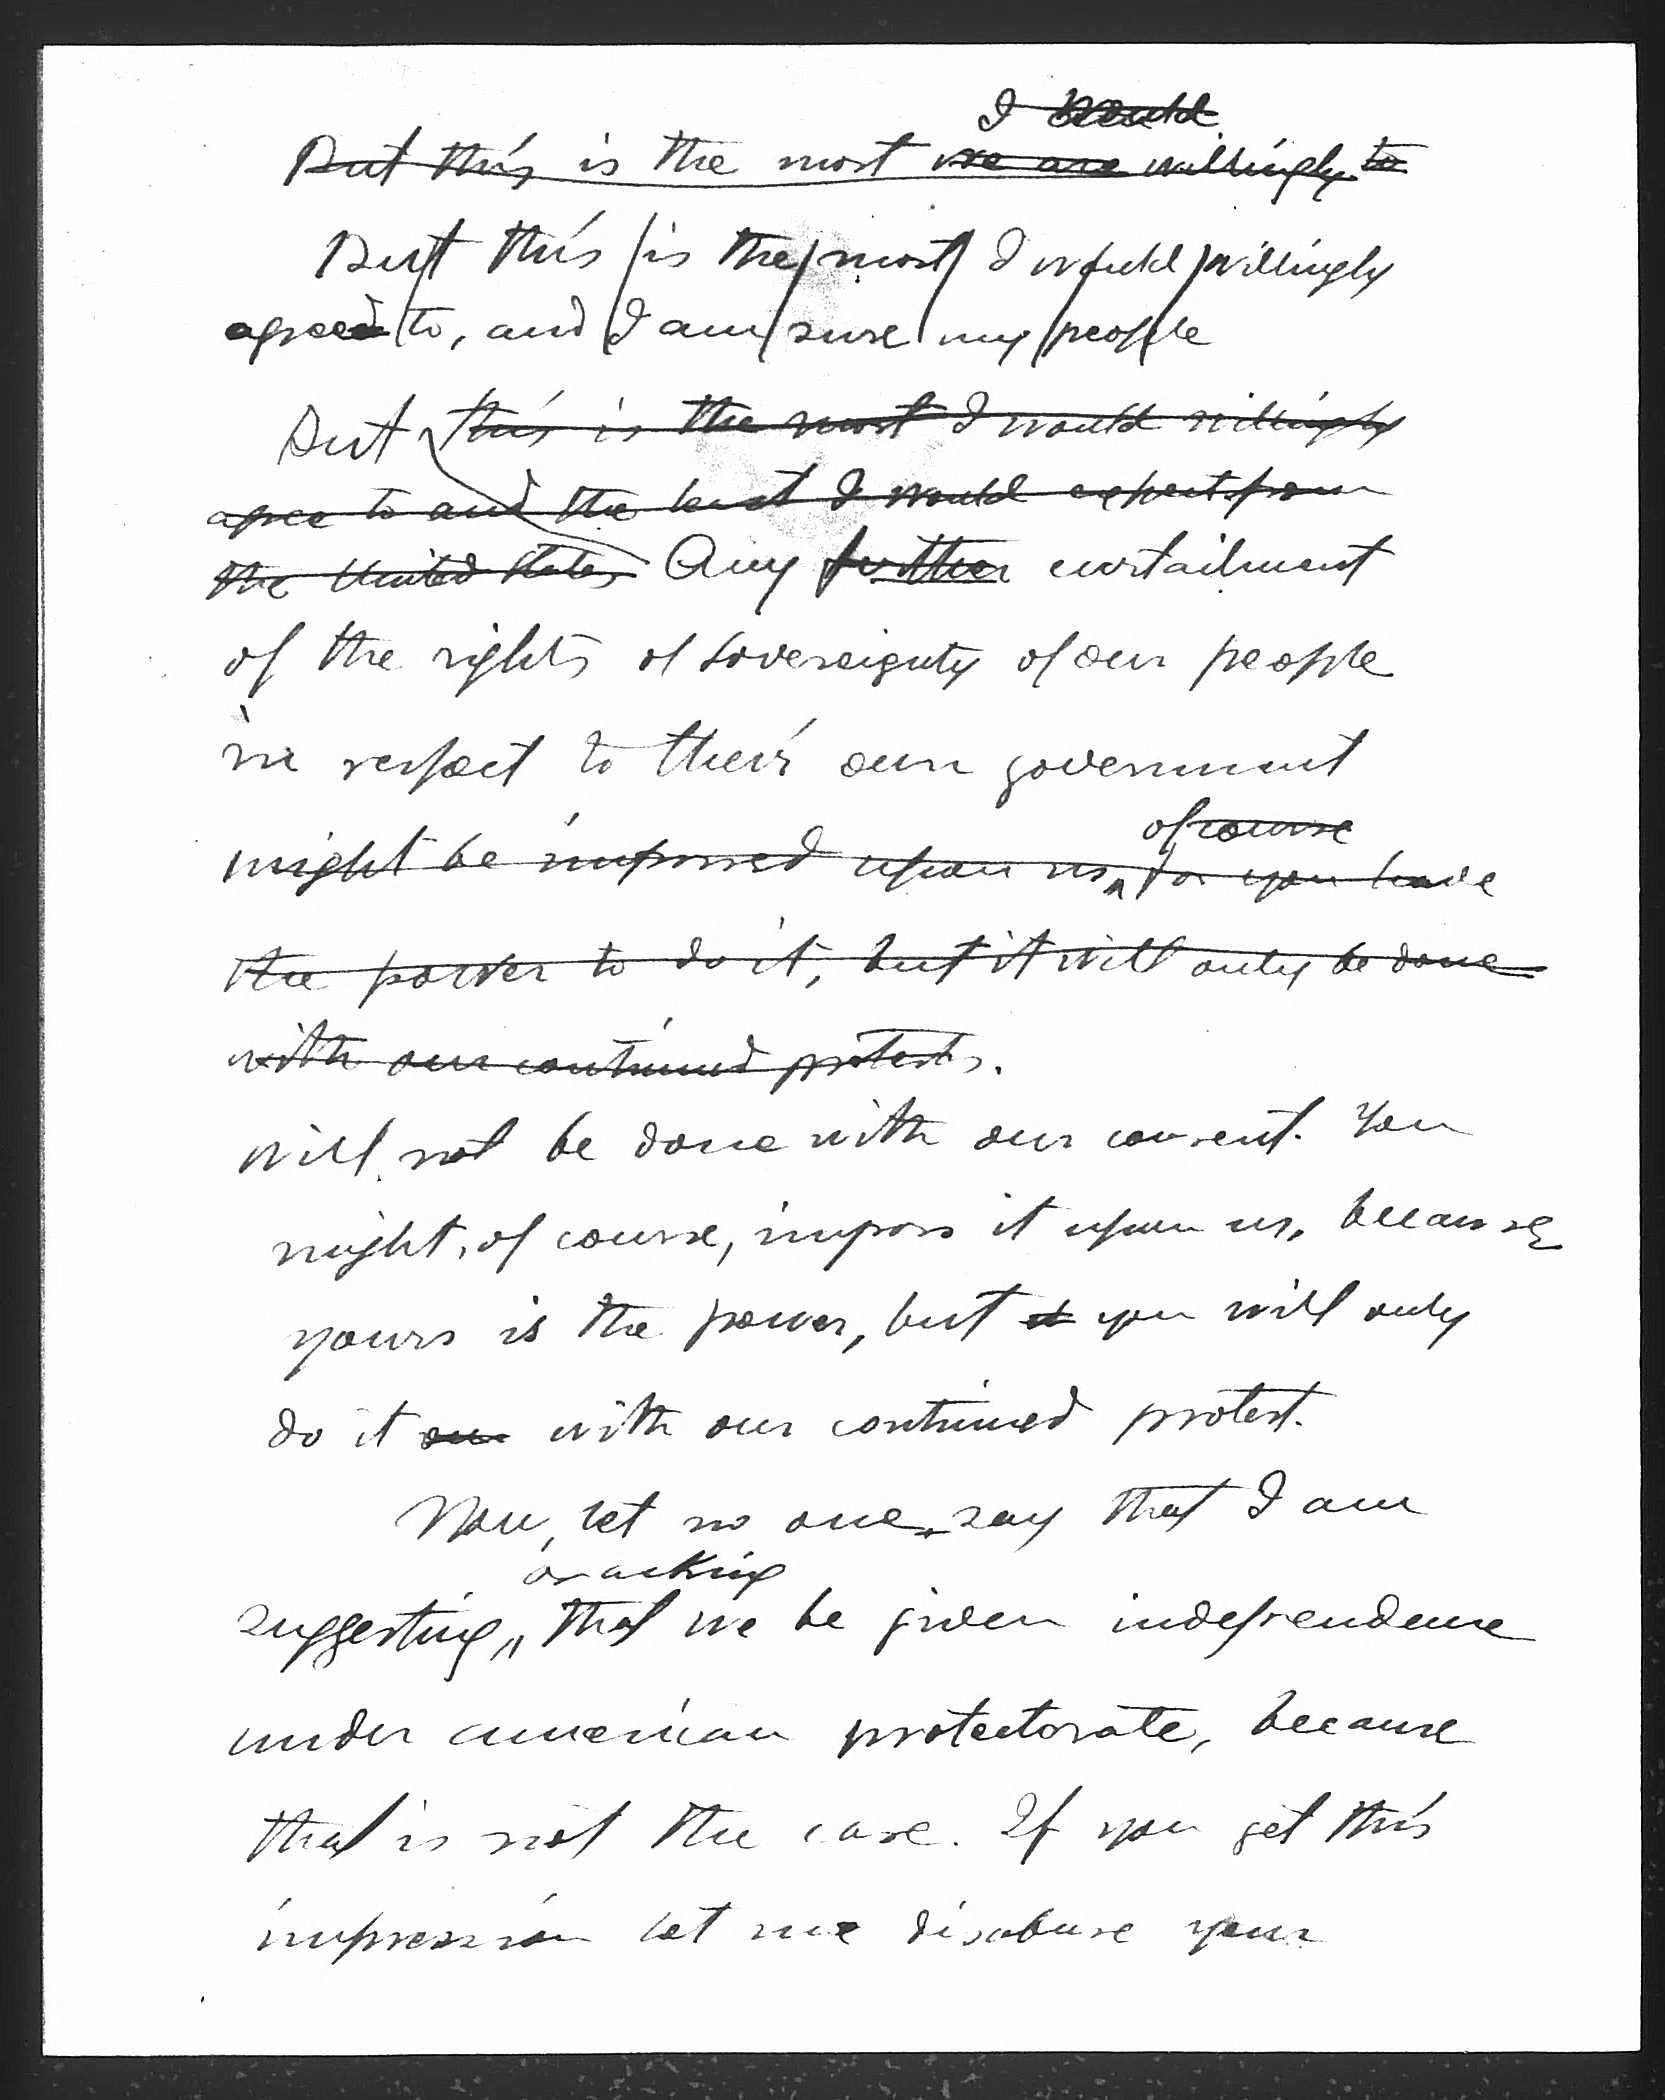 I would
But this is the most we are willingly to
But this is the most I would willingly
agreed to, and I am sure my people
But this is the most I would willingly
agree to and the least I would expect from
the United States Any further curtailment
of the rights of sovereignty of our people
in respect to their own government
of course
might be imposed upon us, for you have
the power to do it, but it will only be done
with our continued protests.
will not be done with our consent. You
might, of course, impose it upon us, because
yours is the power, but it you will only
do it our with our continued protest.
Now, let no one say that I am
or asking
suggesting, that we be given independence
under american protectorate, because
that is not the case. If you get this
impression let me disabuse your